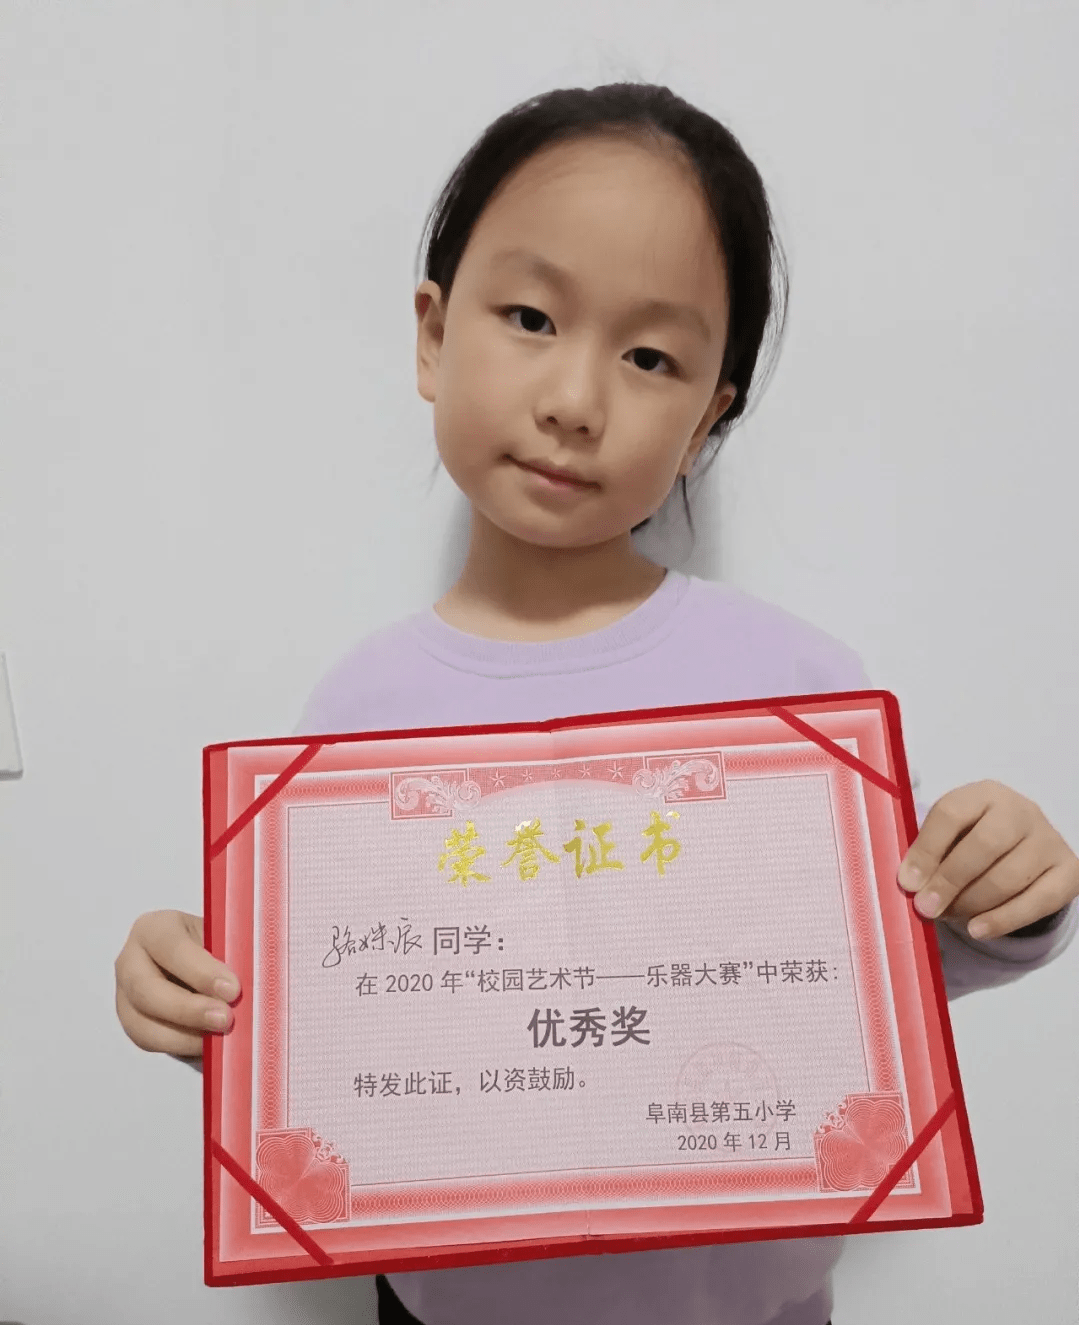 荣誉证书
骆姝辰 同学：
在 2020 年“校园艺术节——乐器大赛”中荣获：
优秀奖
特发此证，以资鼓励。
阜南县第五小学
2020 年 12 月